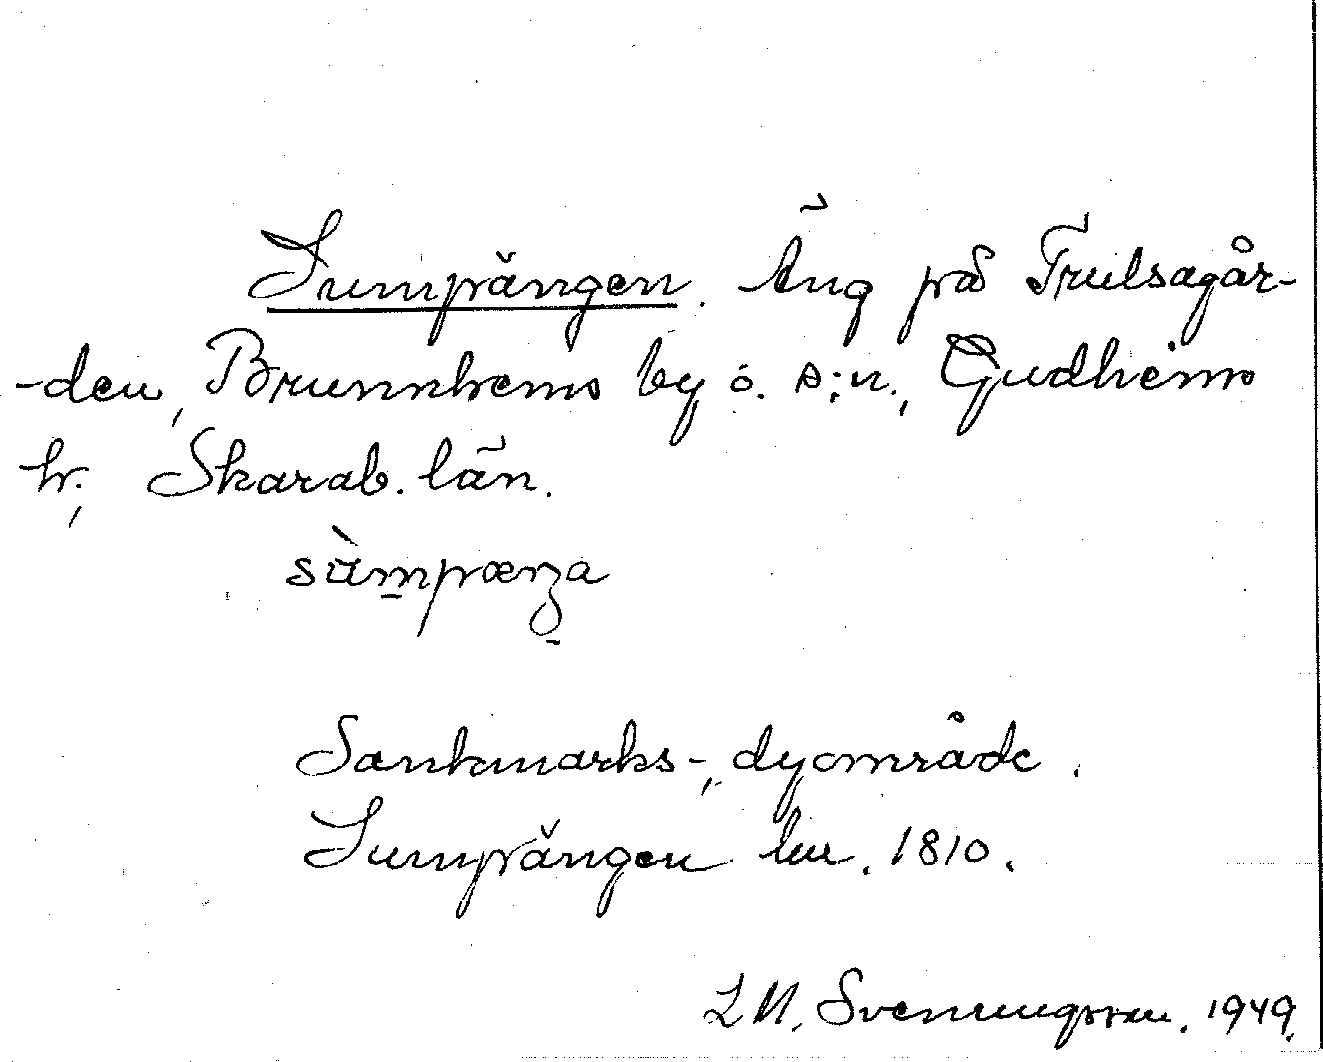 Sumpängen. Äng på Trulsagår-
-den, Brunnhems by o. s:n., Gudhems
hr., Skarab. län.
sùmpæŋa
Sankmarks-, dyområde.
Sumpängen lm. 1810.
L M. Svenungsson. 1949.